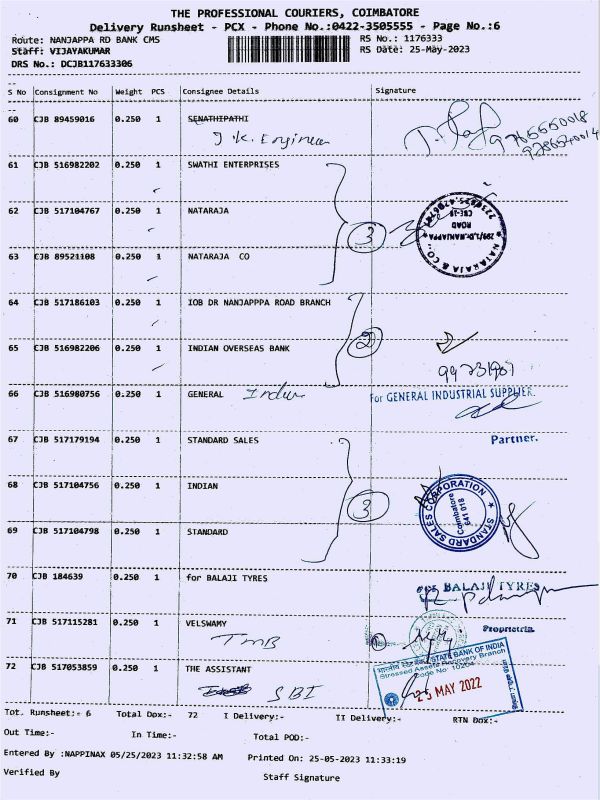 THE PROFESSIONAL COURIERS, COIMBATORE
Delivery Runsheet - PCX - Phone No.:0422-3505555 - Page No.:6
Route: NANJAPPA RD BANK CMS RS No.: 1176333
Staff: VIJAYAKUMAR RS Date: 25-May-2023
DRS No.: DCJB117633306
S No Consignment No Weight PCS Consignee Details Signature
60 CJB 89459016 0.250 1 SENATHIPATHI
J.K. Engineer
61 CJB 516982202 0.250 1 SWATHI ENTERPRISES
62 CJB 517104767 0.250 1 NATARAJA
3
NATARAJA & CO.,
299/1, Dr. NANJAPPA
ROAD
CBE-18
63 CJB 89521108 0.250 1 NATARAJA CO
64 CJB 517186103 0.250 1 IOB DR NANJAPPPA ROAD BRANCH
2
65 CJB 516982206 0.250 1 INDIAN OVERSEAS BANK
66 CJB 516980756 0.250 1 GENERAL
For GENERAL INDUSTRIAL SUPPLIER.
Partner.
67 CJB 517179194 0.250 1 STANDARD SALES
68 CJB 517104756 0.250 1 INDIAN
3
STANDARD SALES CORPORATION
Coimbatore
641 018
69 CJB 517104798 0.250 1 STANDARD
70 CJB 184639 0.250 1 for BALAJI TYRES
BALAJI TYRES
71 CJB 517115281 0.250 1 VELSWAMY
TMB
72 CJB 517053859 0.250 1 THE ASSISTANT
SBI
STATE BANK OF INDIA
Stressed Assets Recovery Branch
MAY 2022
Tot. Runsheet:- 6 Total Dox:- 72 I Delivery:- II Delivery:- RTN Dox:-
Out Time:- In Time:- Total POD:-
Entered By :NAPPINAX 05/25/2023 11:32:58 AM Printed On: 25-05-2023 11:33:19
Verified By Staff Signature